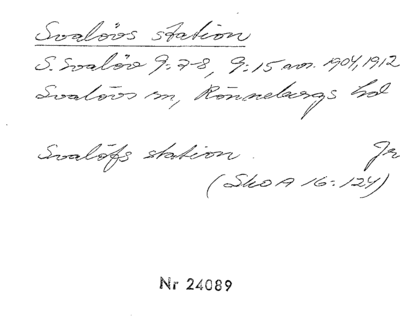 Svalövs station
S. Svalöv 9:7-8, 9:15 avs. 1904, 1912
Svalövs sn, Rönnebergs hd
Svalöfs station. Jr
(SkO A 16:124)
Nr 24089